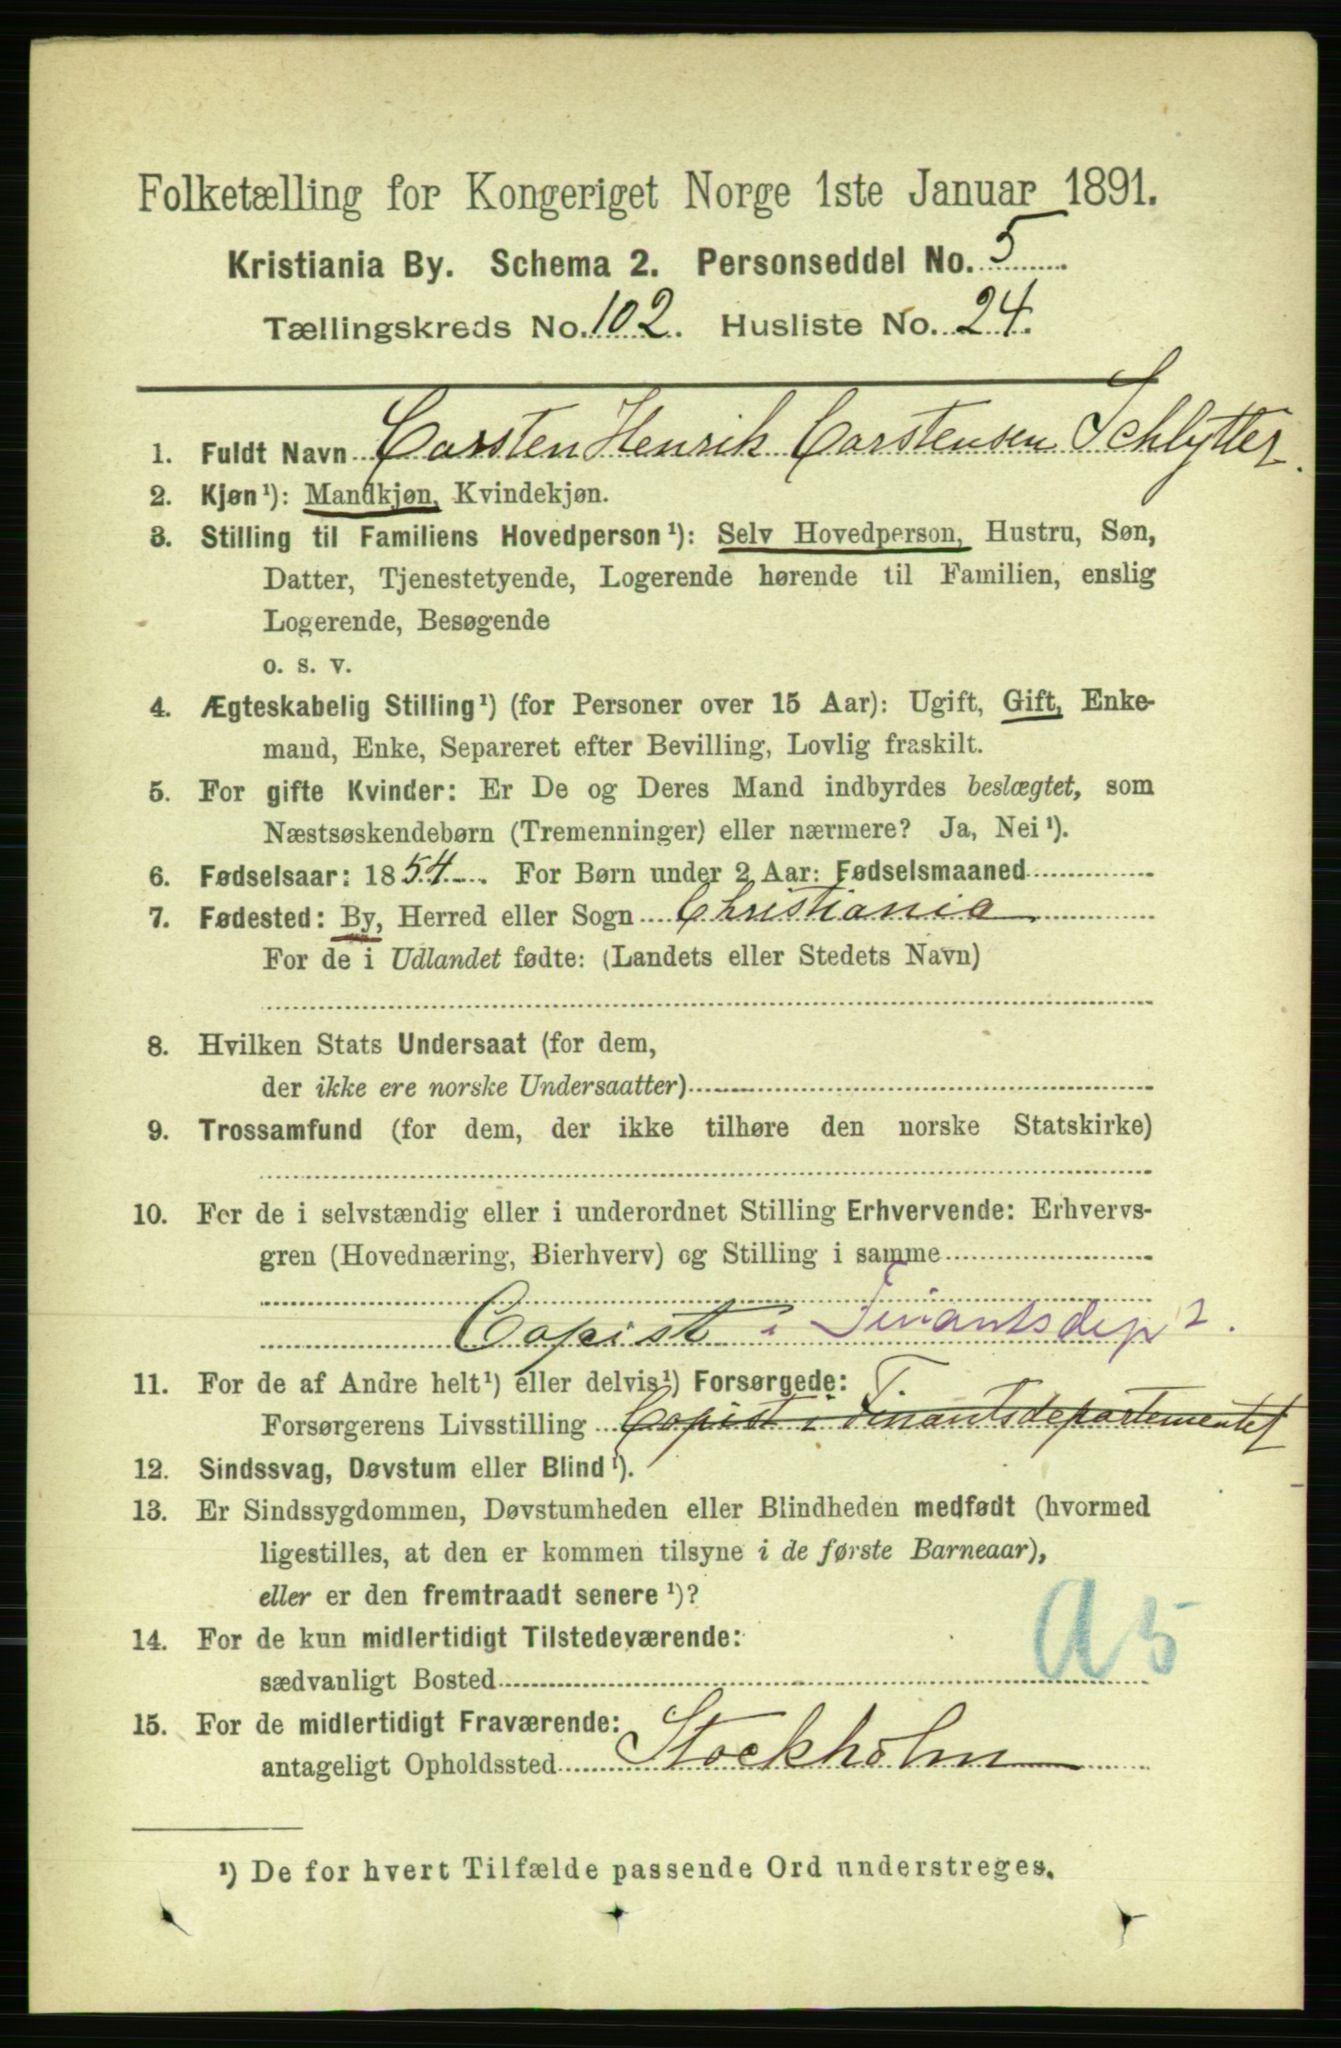 Folketælling for Kongeriget Norge 1ste Januar 1891.
Kristiania By. Schema 2. Personseddel No. 5
Tællingskreds No. 102. Husliste No. 24.
1. Fuldt Navn Carsten Henrik Carstensen Schlytter.
2. Kjøn¹): Mandkjøn, Kvindekjøn.
3. Stilling til Familiens Hovedperson¹): Selv Hovedperson, Hustru, Søn,
Datter, Tjenestetyende, Logerende hørende til Familien, enslig
Logerende, Besøgende
o. s. v.
4. Ægteskabelig Stilling¹) (for Personer over 15 Aar): Ugift, Gift, Enke-
mand, Enke, Separeret efter Bevilling, Lovlig fraskilt.
5. For gifte Kvinder: Er De og Deres Mand indbyrdes beslægtet, som
Næstsøskendebørn (Tremenninger) eller nærmere? Ja, Nei¹).
6. Fødselsaar: 1854. For Børn under 2 Aar: Fødselsmaaned
7. Fødested: By, Herred eller Sogn Christiania
For de i Udlandet fødte: (Landets eller Stedets Navn)
8. Hvilken Stats Undersaat (for dem,
der ikke ere norske Undersaatter)
9. Trossamfund (for dem, der ikke tilhøre den norske Statskirke)
10. For de i selvstændig eller i underordnet Stilling Erhvervende: Erhvervs-
gren (Hovednæring, Bierhverv) og Stilling i samme
Copist i Finantsdept.
11. For de af Andre helt¹) eller delvis¹) Forsørgede:
Forsørgerens Livsstilling Copist i Finantsdepartementet
12. Sindssvag, Døvstum eller Blind¹).
13. Er Sindssygdommen, Døvstumheden eller Blindheden medfødt (hvormed
ligestilles, at den er kommen tilsyne i de første Barneaar),
eller er den fremtraadt senere¹)?
14. For de kun midlertidigt Tilstedeværende:
sædvanligt Bosted
a 5
15. For de midlertidigt Fraværende:
antageligt Opholdssted Stockholm
¹) De for hvert Tilfælde passende Ord understreges.